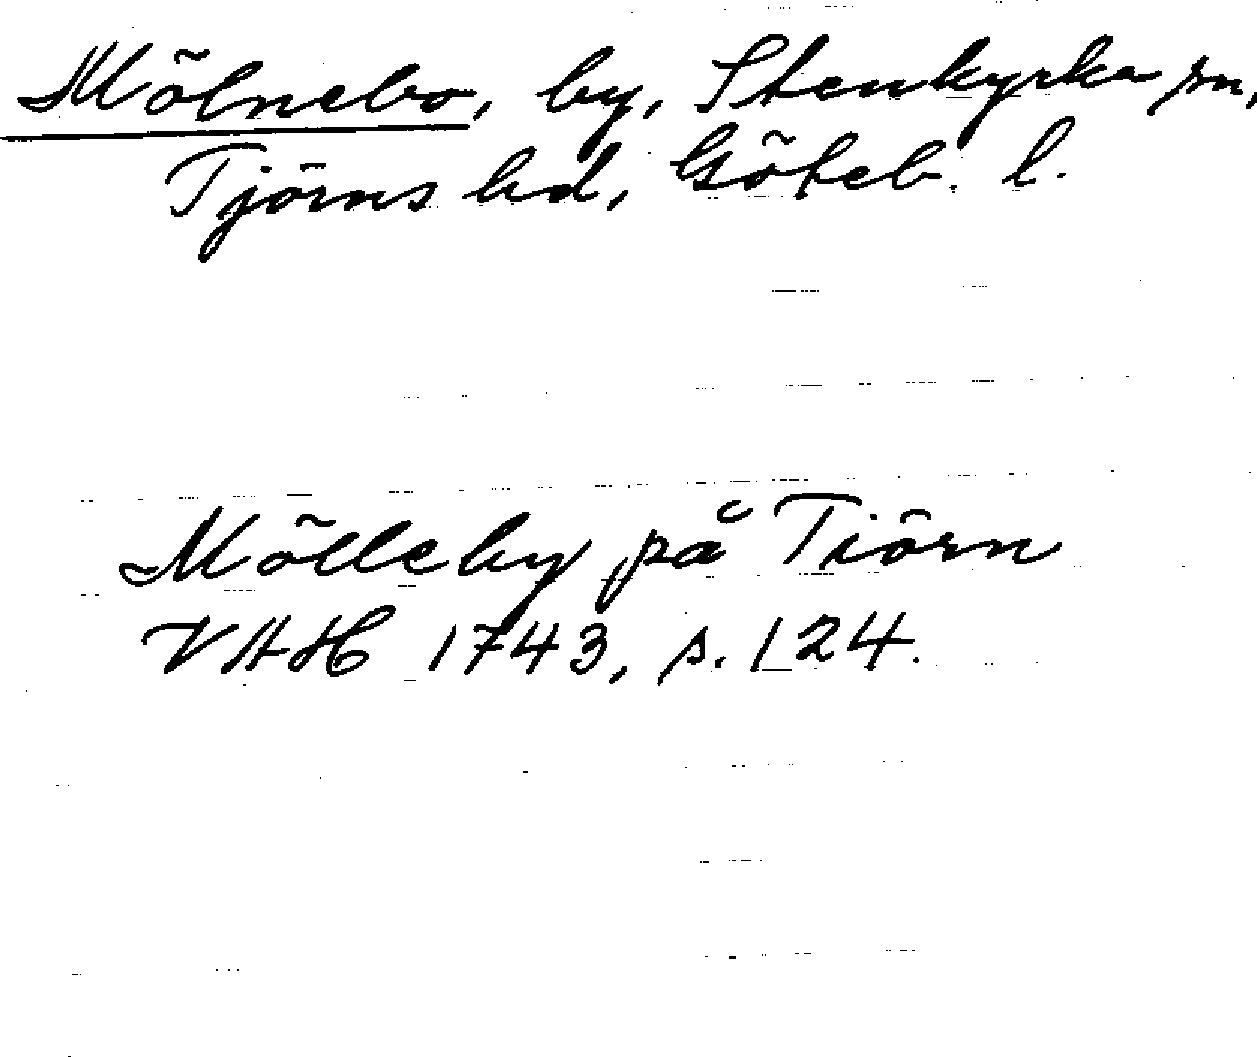 Mölnebo, by, Stenkyrka sn,
Tjörns hd, Göteb. l.
Mölleby på Tiörn
VAH 1743, s. 124.